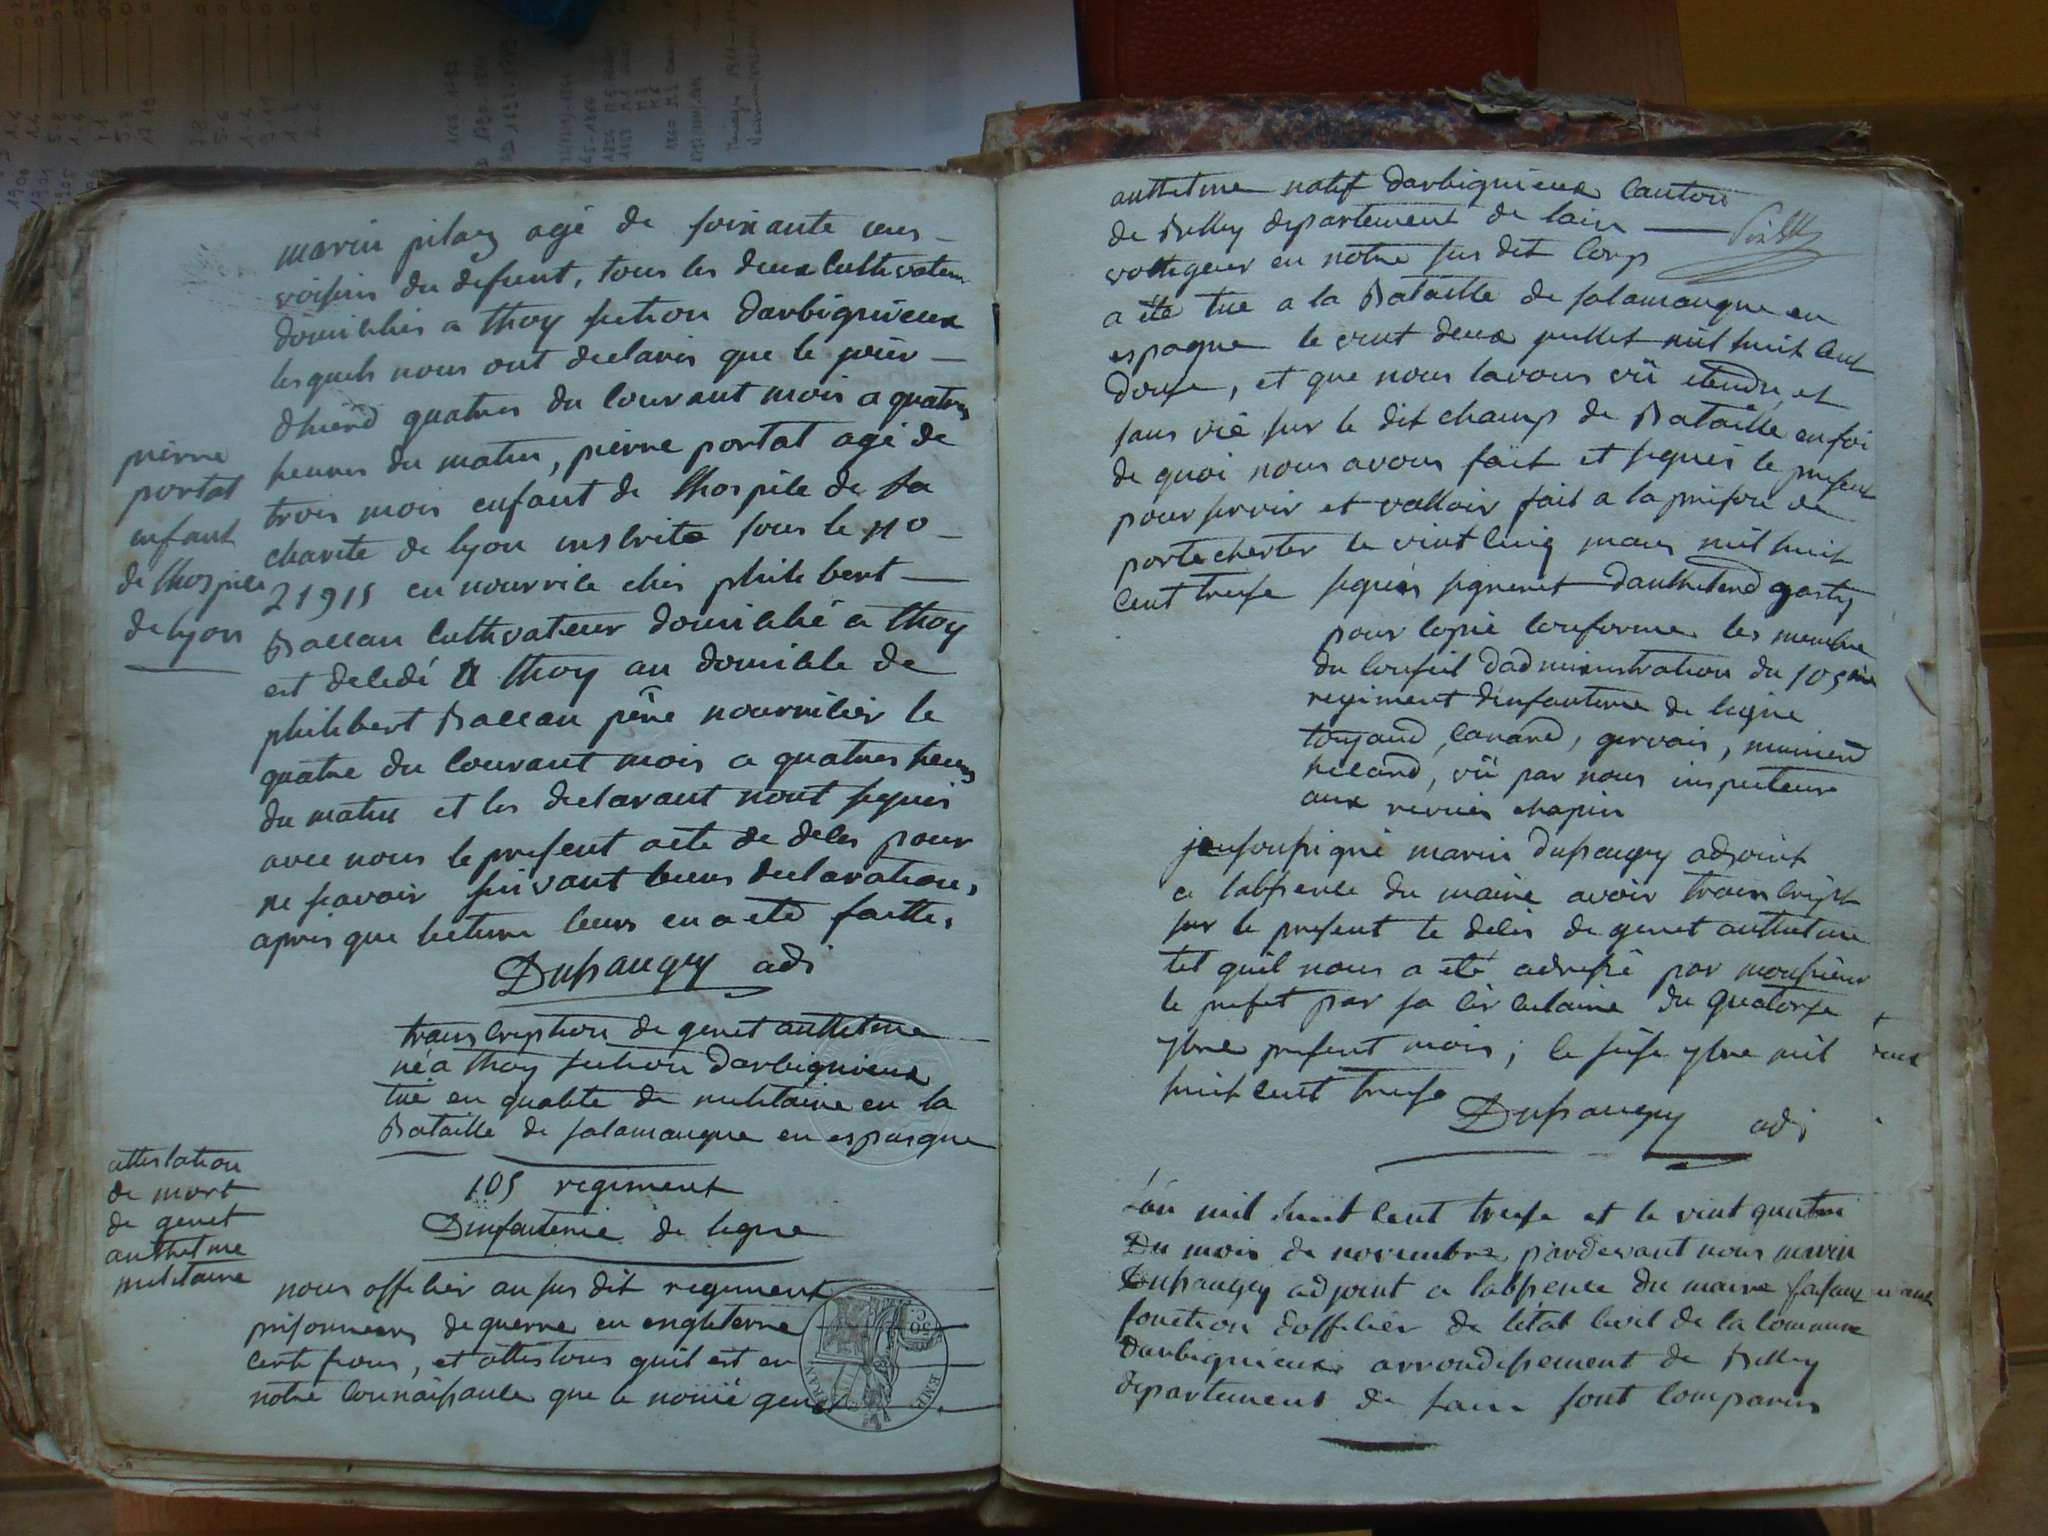 marin pilaz agé de soixante ans
voisins du defunt, tous les deux cultivateur
domicilies a thoy section darbignieux
lesquels nous ont declarés que le jour
dhierd quatres du courant mois a quatres
heures du matin, pierre portat agé de
trois mois enfant de lhospile de la
charité de lyon inscrite sous le no
21915 en nourrice chés philibert
Baccau cultivateur domicilié a thoy
est decedé a thoy au domicile de
philibert Baccau père nourricier le
quatre du courant mois a quatres heures
du matin et les declarant nont signés
avec nous le present acte de deces pour
ne scavoir suivant leurs declarations,
apres que lecture leurs en a eté faitte,
Dupaugey adj
pierre
portat
enfant
de lhospile
de lyon
transcription de genet anthelme
né a thoy section darbignieux
tué en qualité de militaire en la
Bataille de salamanque en espasgne
105 regiment
Dinfanterie de ligne
attestation
de mort
de genet
anthelme
militaire
nous officier au sus dit regiment
prisonniers de guerre en engleterre
certifions, et attestons quil est en
notre connaissance que le nomé genet
anthelme natif darbignieux canton
de Belley departement de lain
voltigeur en notre sus dit corp
a été tué a la Bataille de salamanque en
espagne le vint deux juillet mil huit cent
douse, et que nous lavons vû etendu et
sans vie sur le dit champ de Bataille en foi
de quoi nous avons fait et signés le present
pour servir et valloir fait a la prison de
portechester le vint cinq mars mil huit
cent treise signés signeret danthelend gasty
pour copie conforme les membre
du conseil dadministration du 105me
regiment dinfanterie de ligne
toujand, canard, gervais, munierd
hecand, vû par nous inspecteur
aux revues chapin
je soussigné marin Dupaugey adjoint
a labsence du maire avoir transcript
sur le present le deces de genet anthelme
tel quil nous a eté adressé par monsieur
le prefet par sa circulaire du quatorse
9bre present mois; le seise 9bre mil
huit cent treise
Dupaugey adj
Lan mil huit cent treise et le vint quatre
Du mois de novembre pardevant nous marin
Dupaugey adjoint a labsence du maire faisant
fonction dofficier de létat civil de la commune
Darbignieux arrondissement de Belley
departement de lain sont comparus